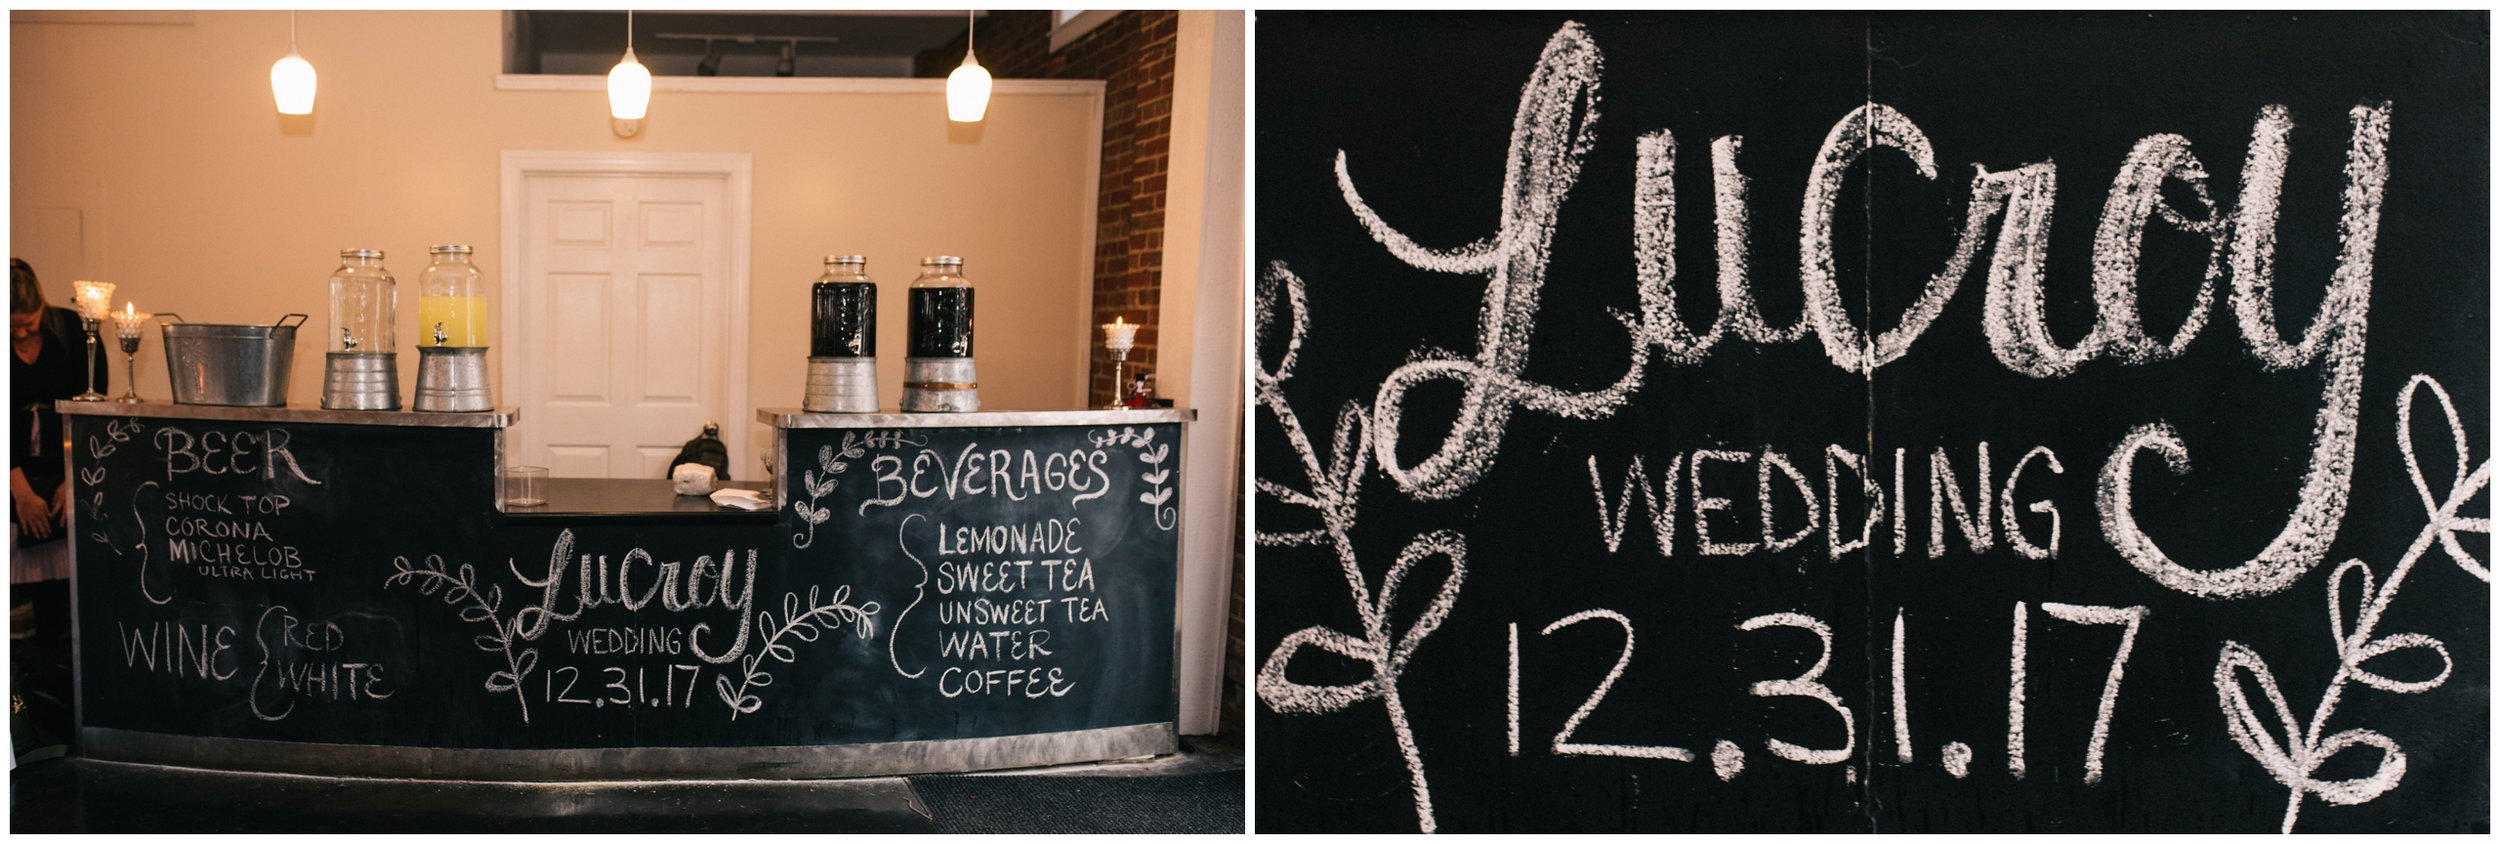 BEER
SHOCK TOP
CORONA
MICHELOB
ULTRA LIGHT
WINE
RED
WHITE
Lucroy
WEDDING
12.31.17
BEVERAGES
LEMONADE
SWEET TEA
UNSWEET TEA
WATER
COFFEE
Lucroy
WEDDING
12.31.17